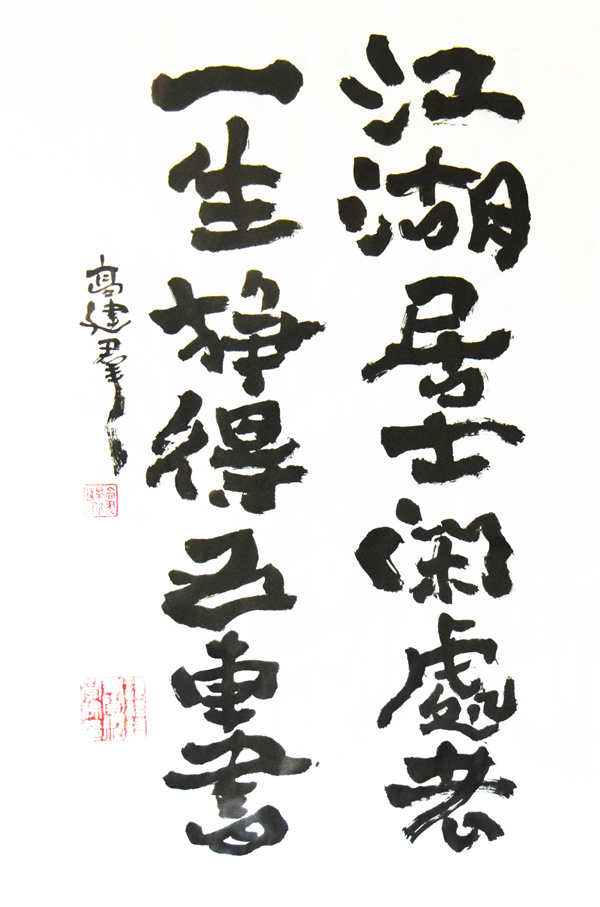 江湖居士閑處老
一生掙得五車書
高建羣